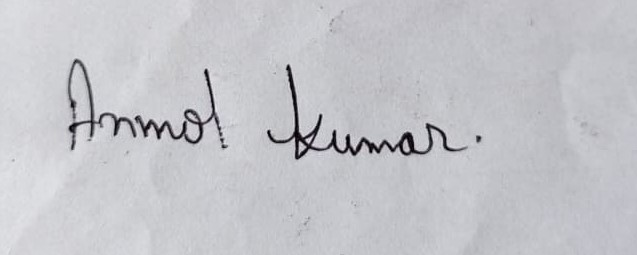 Anmol Kumar.